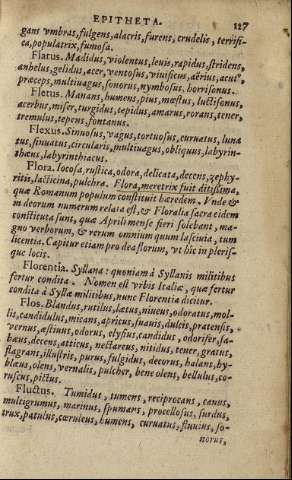 EPITHETA. 127
gans vmbras, fulgens, alacris, furens, crudelis, terrifi-
ca, populatrix, fumosa.
Flatus. Madidus, violentus, leuis, rapidus, stridens,
anhelus, gelidus, acer, ventosus, viuificus, aërius, acut⁹,
præceps, multiuagus, sonorus, nymbosus, horrisonus.
Fletus. Manans, humens, pius, mœstus, luctisonus,
acerbus, miser, turgidus, tepidus, amarus, rorans, tener,
tremulus, tepens, fontanus.
Flexus. Sinuosus, vagus, tortuosus, curuatus, luna
tus, sinuatus, circularis, multiuagus, obliquus, labyrin-
thæus, labyrinthiacus.
Flora. Iocosa, rustica, odora, delicata, decens, zephy-
ritis, lacticina, pulchra. Flora, meretrix fuit ditissima,
quæ Romanum populum constituit hæredem. Vnde &
in deorum numerum relata est, & Floralia sacra eidem
constituta sunt, quæ Aprili mense fieri solebant, ma-
gno verborum, & rerum omnium quum lasciuia, tum
licentia. Capitur etiam pro dea florum, vt hic in pleris-
que locis.
Florentia. Syllana: quoniam à Syllanis militibus
fertur condita. Nomen est vrbis Italiæ, quæ fertur
condita à Syllæ militibus, nunc Florentia dicitur.
Flos. Blandus, rutilus, lætus, niueus, odoratus, mol-
lis, candidulus, micans, apricus, suauis, dulcis, pratensis,
vernus, æstiuus, odorus, elysius, candidus, odorifer, sa-
bæus, decens, atticus, nectareus, nitidus, tener, gratus,
flagrans, illustris, purus, fulgidus, decorus, halans, hy-
blæus, olens, vernalis, pulcher, bene olens, bellulus, co-
ruscus, pictus.
Fluctus. Tumidus, tumens, reciprocans, cauus,
multigrumus, marinus, spumans, procellosus, surdus,
trux, patulus, cæruleus, humens, curuatus, fluuius, so-
norus,